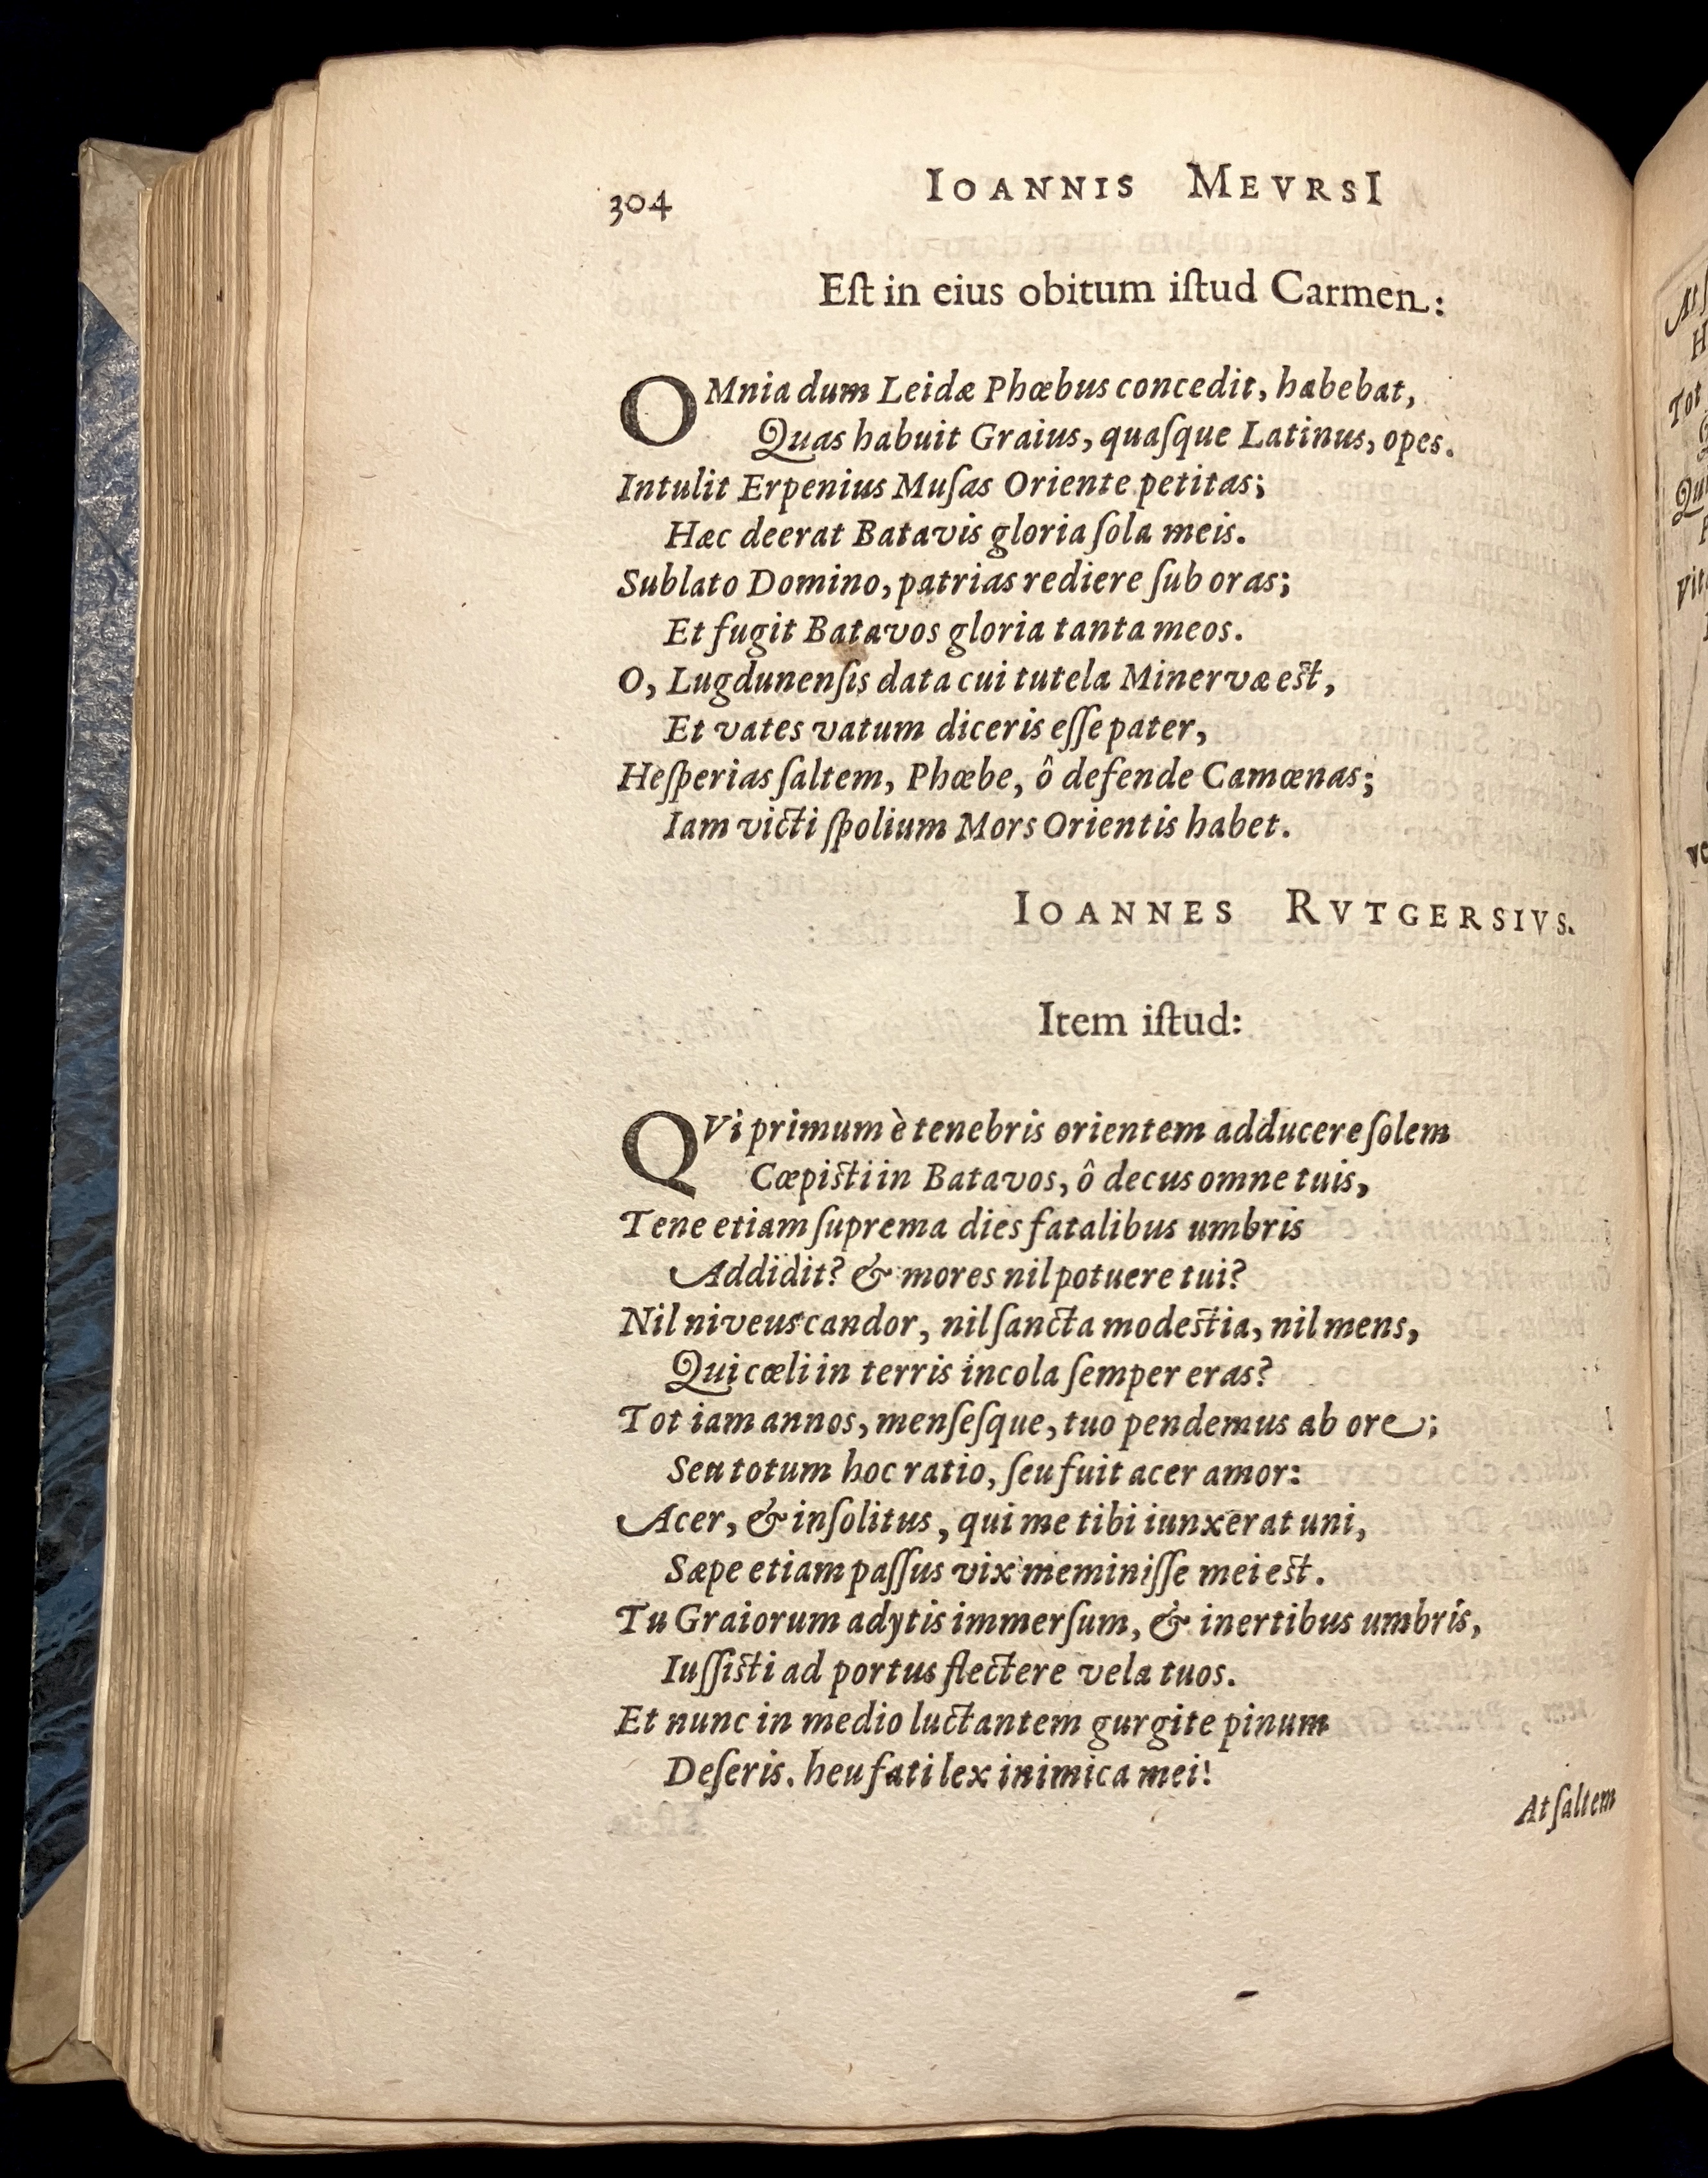 304 IOANNIS MEVRSI
Eſt in eius obitum iſtud Carmen:
OMnia dum Leidæ Phœbus concedit, habebat,
Quas habuit Graius, quaſque Latinus, opes.
Intulit Erpenius Muſas Oriente petitas;
Hæc deerat Batavis gloria ſola meis.
Sublato Domino, patrias rediere ſub oras;
Et fugit Batavos gloria tanta meos.
O, Lugdunenſis data cui tutela Minervæ est,
Et vates vatum diceris eſſe pater,
Heſperias ſaltem, Phœbe, ô defende Camœnas;
Iam victi ſpolium Mors Orientis habet.
IOANNES RVTGERSIVS.
Item iſtud:
QVi primum è tenebris orientem adducere ſolem
Cœpisti in Batavos, ô decus omne tuis,
Tene etiam ſuprema dies fatalibus umbris
Addidit? & mores nil potuere tui?
Nil niveus candor, nil ſancta modestia, nil mens,
Qui cœli in terris incola ſemper eras?
Tot iam annos, menſeſque, tuo pendemus ab ore;
Seu totum hoc ratio, ſeu fuit acer amor:
Acer, & inſolitus, qui me tibi iunxerat uni,
Sæpe etiam paſſus vix meminiſſe mei est.
Tu Graiorum adytis immerſum, & inertibus umbris,
Iuſſisti ad portus flectere vela tuos.
Et nunc in medio luctantem gurgite pinum
Deſeris. heu fati lex inimica mei!
At ſaltem
Tot